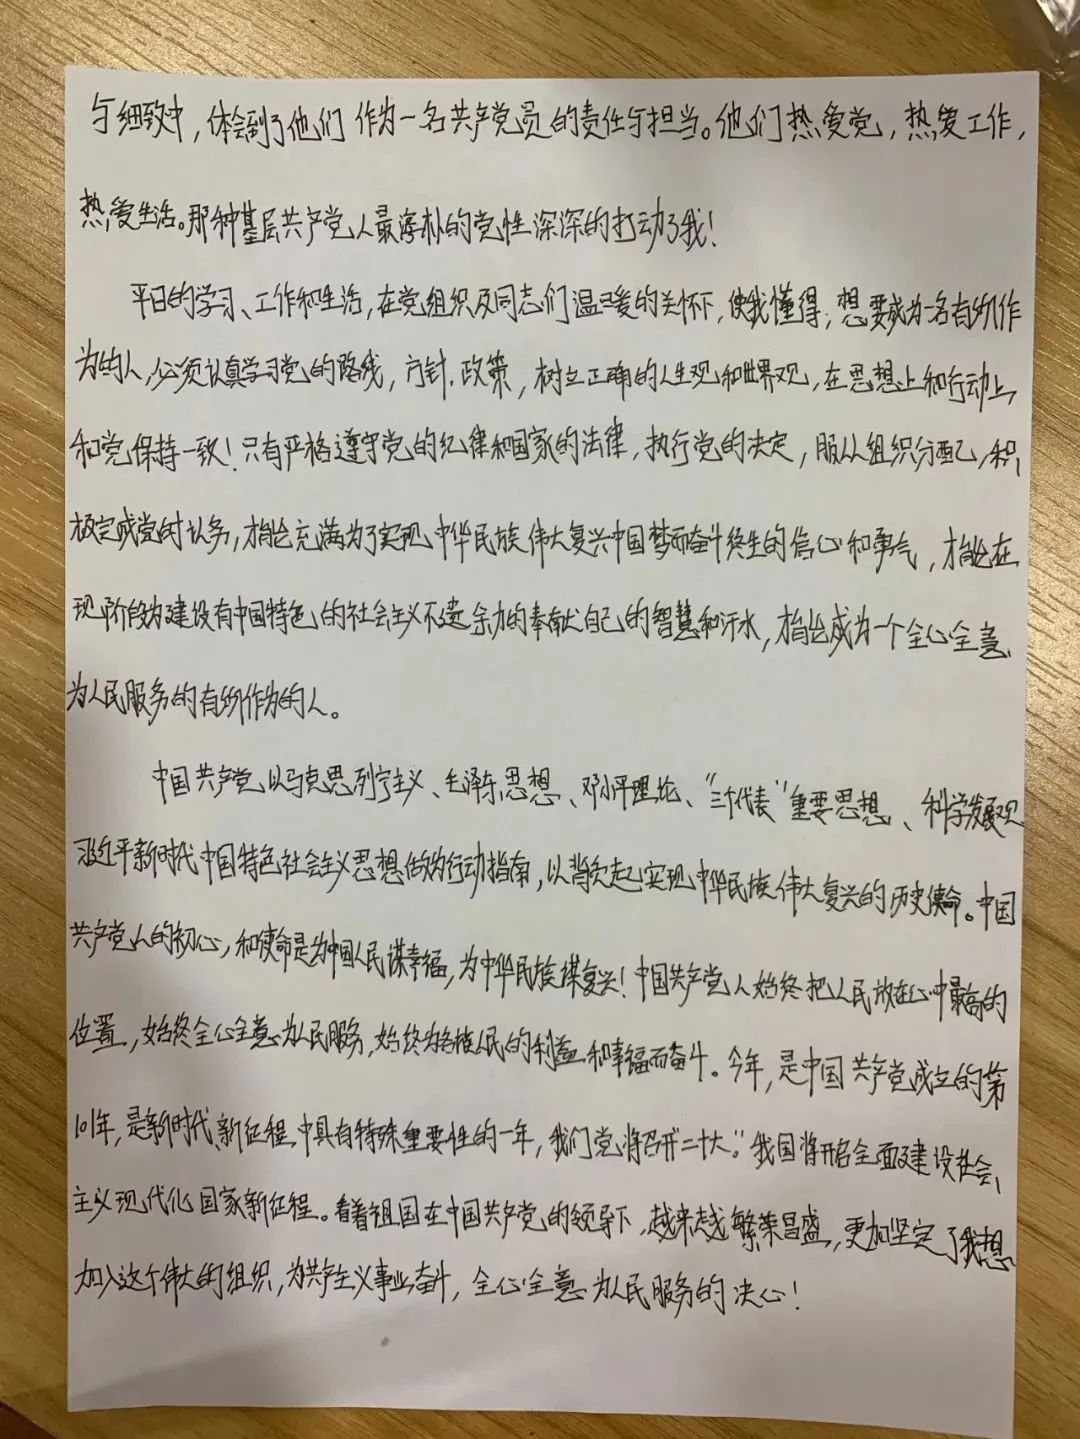 与细致中，体会到了他们作为一名共产党员的责任与担当。他们热爱党，热爱工作，
热爱生活。那种基层共产党人最淳朴的党性深深的打动了我！
平日的学习、工作和生活，在党组织及同志们温暖的关怀下，使我懂得；想要成为一名有所作
为的人，必须认真学习党的路线，方针.政策，树立正确的人生观和世界观，在思想上和行动上
和党保持一致！只有严格遵守党的纪律和国家的法律，执行党的决定，服从组织分配，积
极完成党的任务，才能充满为了实现中华民族伟大复兴中国梦而奋斗终生的信心和勇气，才能在
现阶段为建设有中国特色的社会主义不遗余力的奉献自己的智慧和汗水，才能成为一个全心全意
为人民服务的有所作为的人。
中国共产党以马克思列宁主义、毛泽东思想、邓小平理论、“三个代表”重要思想、科学发展观
习近平新时代中国特色社会主义思想做为行动指南，以背负起实现中华民族伟大复兴的历史使命。中国
共产党人的初心，和使命是为中国人民谋幸福，为中华民族谋复兴！中国共产党人始终把人民放在心中最高的
位置，始终全心全意为人民服务，始终为各族人民的利益和幸福而奋斗。今年，是中国共产党成立的第
101年，是新时代、新征程中具有特殊重要性的一年，我们党将召开“二十大”。我国将开启全面建设社会
主义现代化国家新征程。看着祖国在中国共产党的领导下，越来越繁荣昌盛，更加坚定了我想
加入这个伟大的组织，为共产主义事业奋斗，全心全意为人民服务的决心！